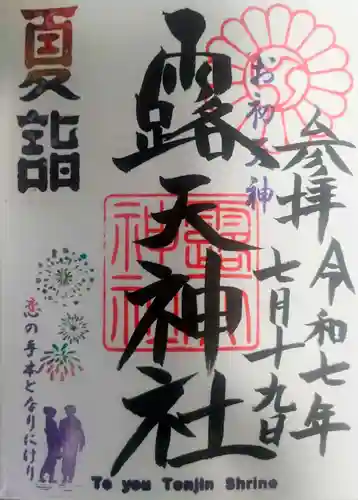 参拝
令和七年
七月十九日
お初天神
露天神社
露天神社
夏詣
恋の手本となりにけり
To you Tenjin Shrine